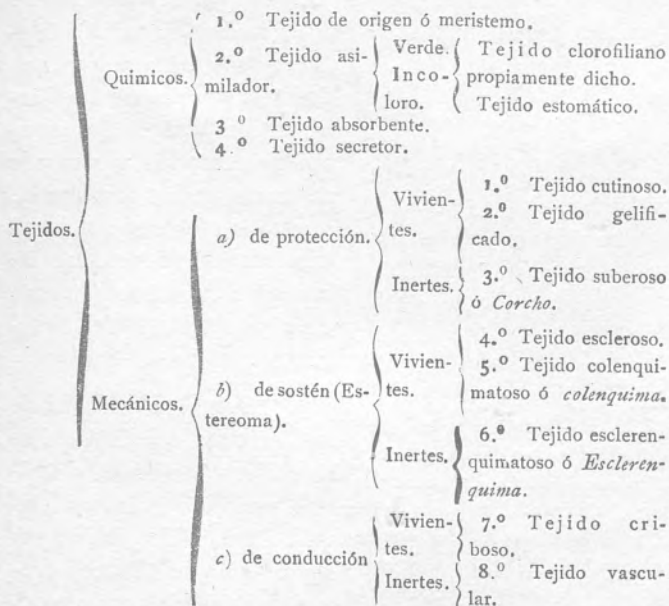 1.º Tejido de origen ó meristemo.
Quimicos.
2.º Tejido asi-
milador.
Verde.
Inco-
loro.
Tejido clorofiliano
propiamente dicho.
Tejido estomático.
3 º Tejido absorbente.
4.º Tejido secretor.
Tejidos.
Mecánicos.
a) de protección.
Vivien-
tes.
1.º Tejido cutinoso.
2.º Tejido gelifi-
cado.
Inertes.
3.º Tejido suberoso
ó Corcho.
b) de sostén (Es-
tereoma).
Vivien-
tes.
4.º Tejido escleroso.
5.º Tejido colenqui-
matoso ó colenquima.
Inertes.
6.º Tejido escleren-
quimatoso ó Escleren-
quima.
c) de conducción
Vivien-
tes.
7.º Tejido cri-
boso.
Inertes.
8.º Tejido vascu-
lar.